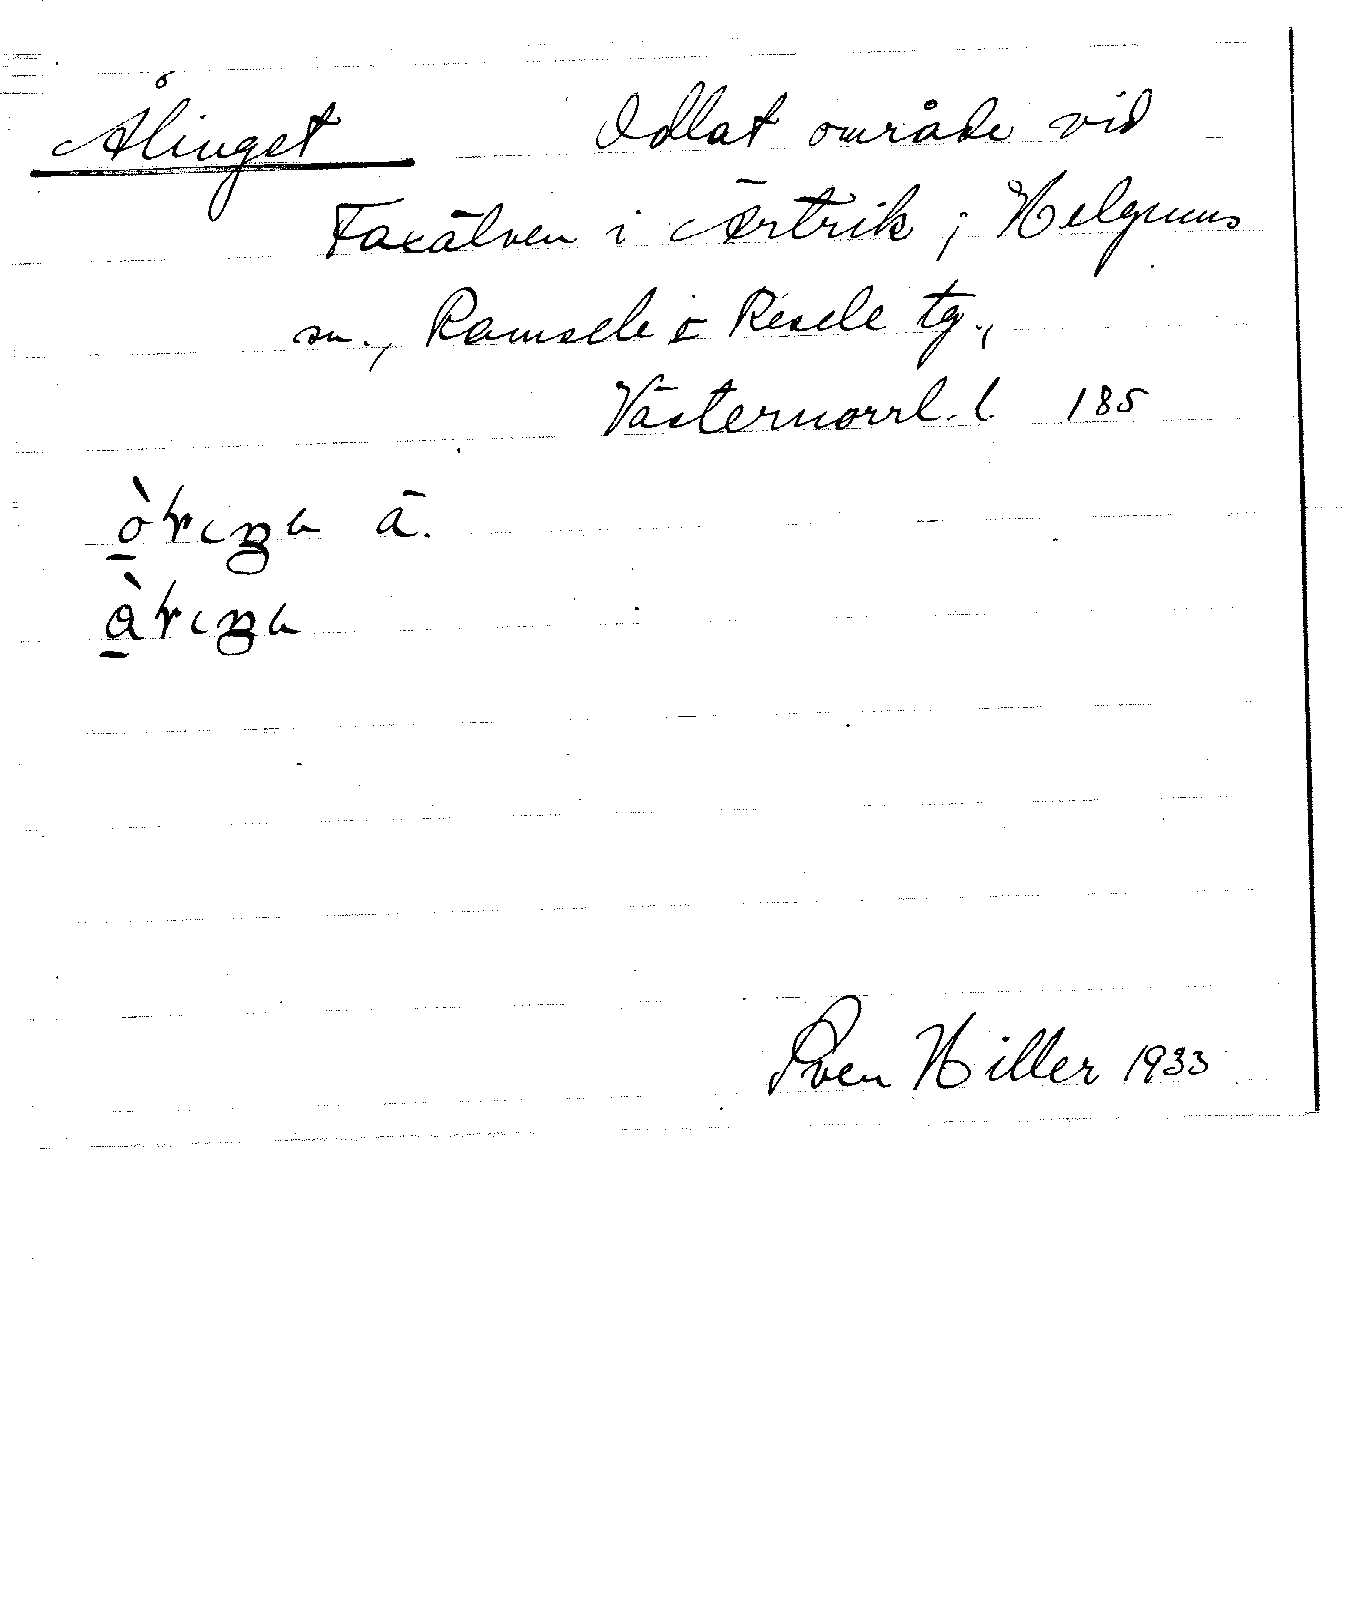 Ålinget Odlat område vid
Faxälven i Ärtrik, Helgums
sn., Ramsele o Resele tg.,
Västernorrl. l. 185
ä.
Sven Hiller 1933